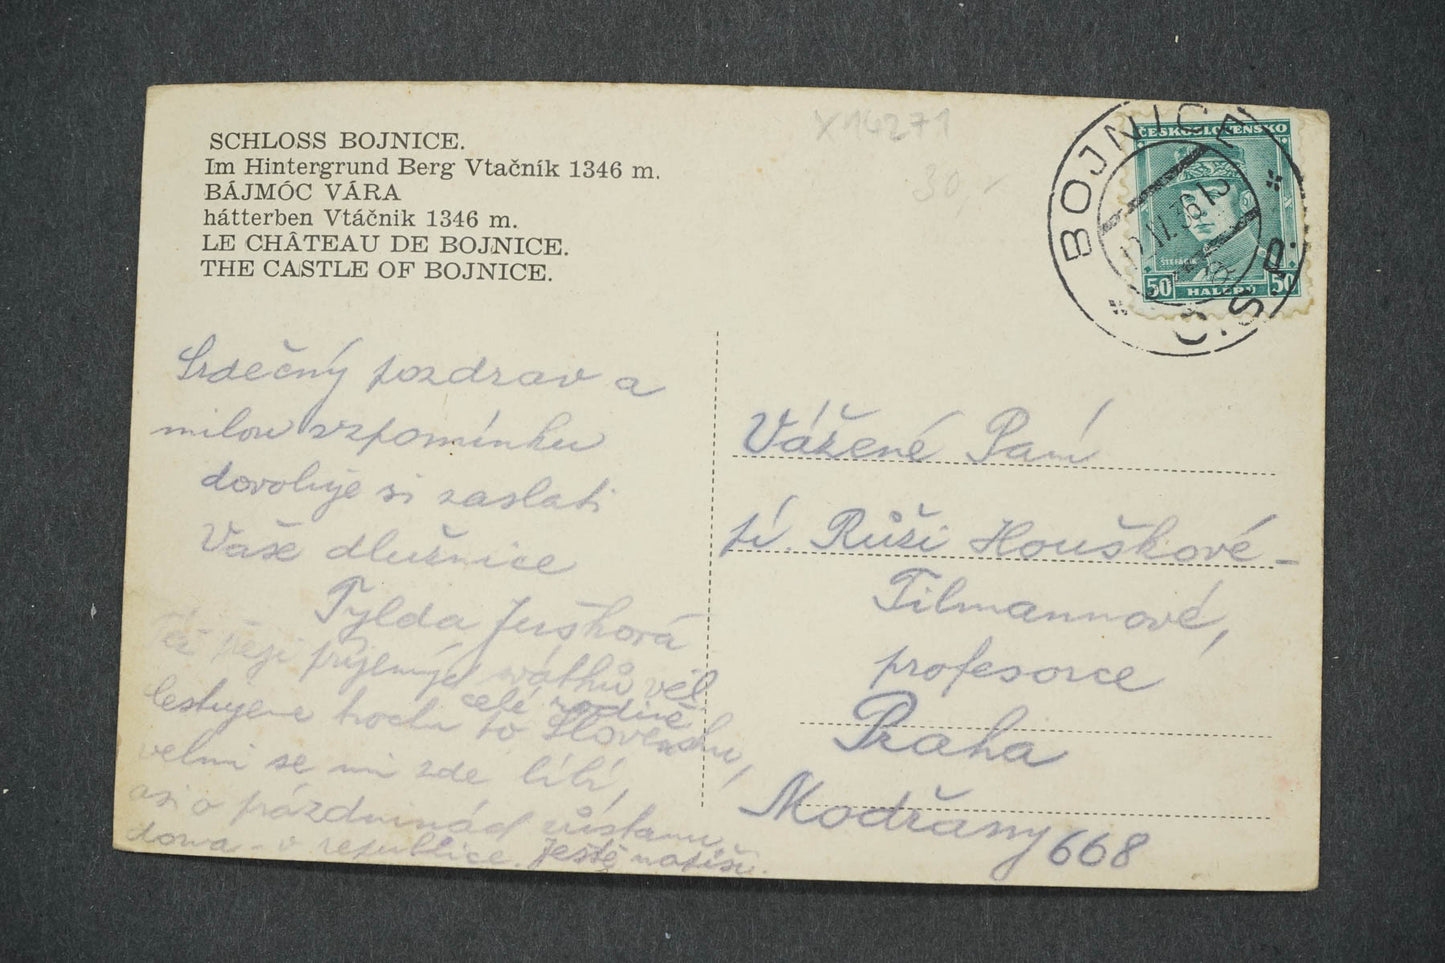 SCHLOSS BOJNICE.
Im Hintergrund Berg Vtačník 1346 m.
BÁJMÓC VÁRA
hátterben Vtáčnik 1346 m.
LE CHÂTEAU DE BOJNICE.
THE CASTLE OF BOJNICE.
X14271
30,-
BOJNICE
Č.S.P.
ČESKOSLOVENSKO
ŠTEFÁNIK
50 HALÉŘŮ 50
Srdečný pozdrav a
milou vzpomínku
dovoluje si zaslati
Vaše dlužnice
Tylda Jušková
Též přeji příjemných svátků
celé rodině
Cestujeme trochu po Slovensku,
velmi se mi zde líbí,
asi o prázdninách zůstanu
doma - v republice. Ještě napíšu.
Vážené Paní
pí. Růži Houškové-
Tilmannové,
profesorce
Praha
Modřany 668